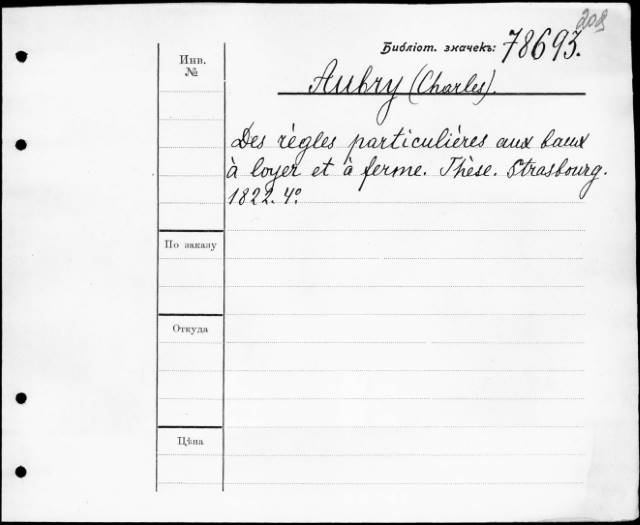 208
Библіот. значекъ: 78693.
Инв.
№
Aubry (Charles).
Des règles particulières aux baux
à loyer et à ferme. Thèse. Strasbourg.
1822. 4º
По заказу
Откуда
Цѣна